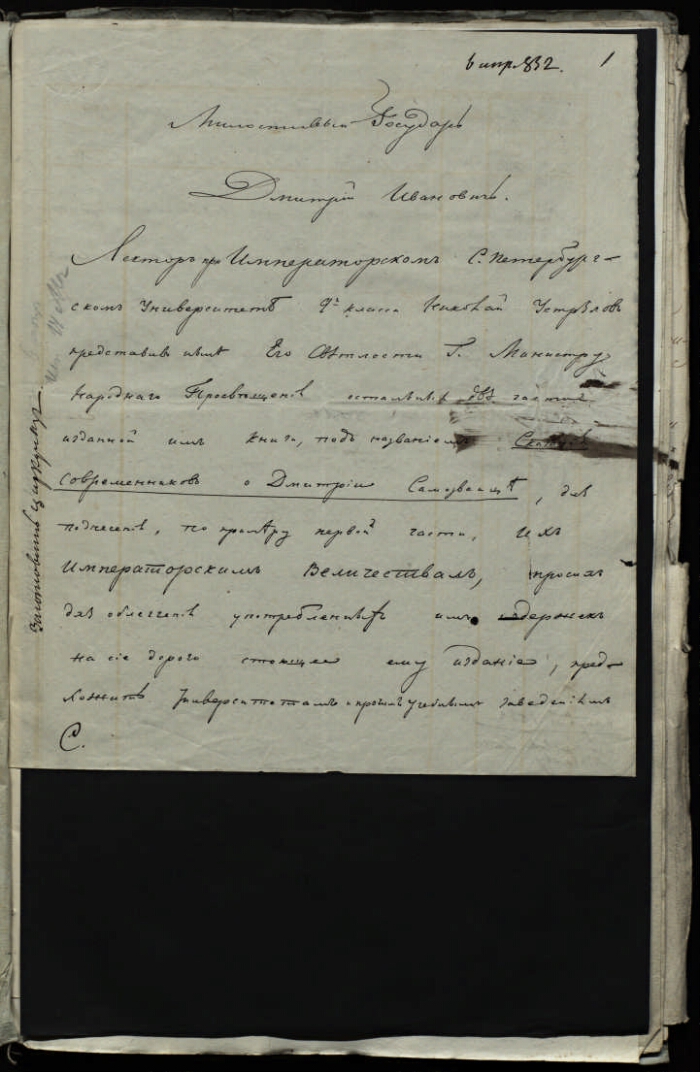 6 апр. 832. 1
Милостивый Государь
Дмитрій Ивановичъ.
Лекторъ при Императорскомъ С. Петербург-
скомъ Университетѣ 9го класса Николай Устряловъ
представивъ нынѣ Его Свѣтлости Г. Министру
Народнаго Просвѣщенія остальныя двѣ части
изданной имъ книги, подъ названіемъ Сказанія
Современниковъ о Дмитріи Самозванцѣ, для
поднесенія, по примѣру первой части, Ихъ
Императорскимъ Величествамъ, просилъ
для облегченія употребленныхъ имъ издержекъ
на сіе дорого стоющее ему изданіе, пред-
ложить Университетамъ и прочимъ учебнымъ заведеніямъ
С.
Заготовить циркуляръ